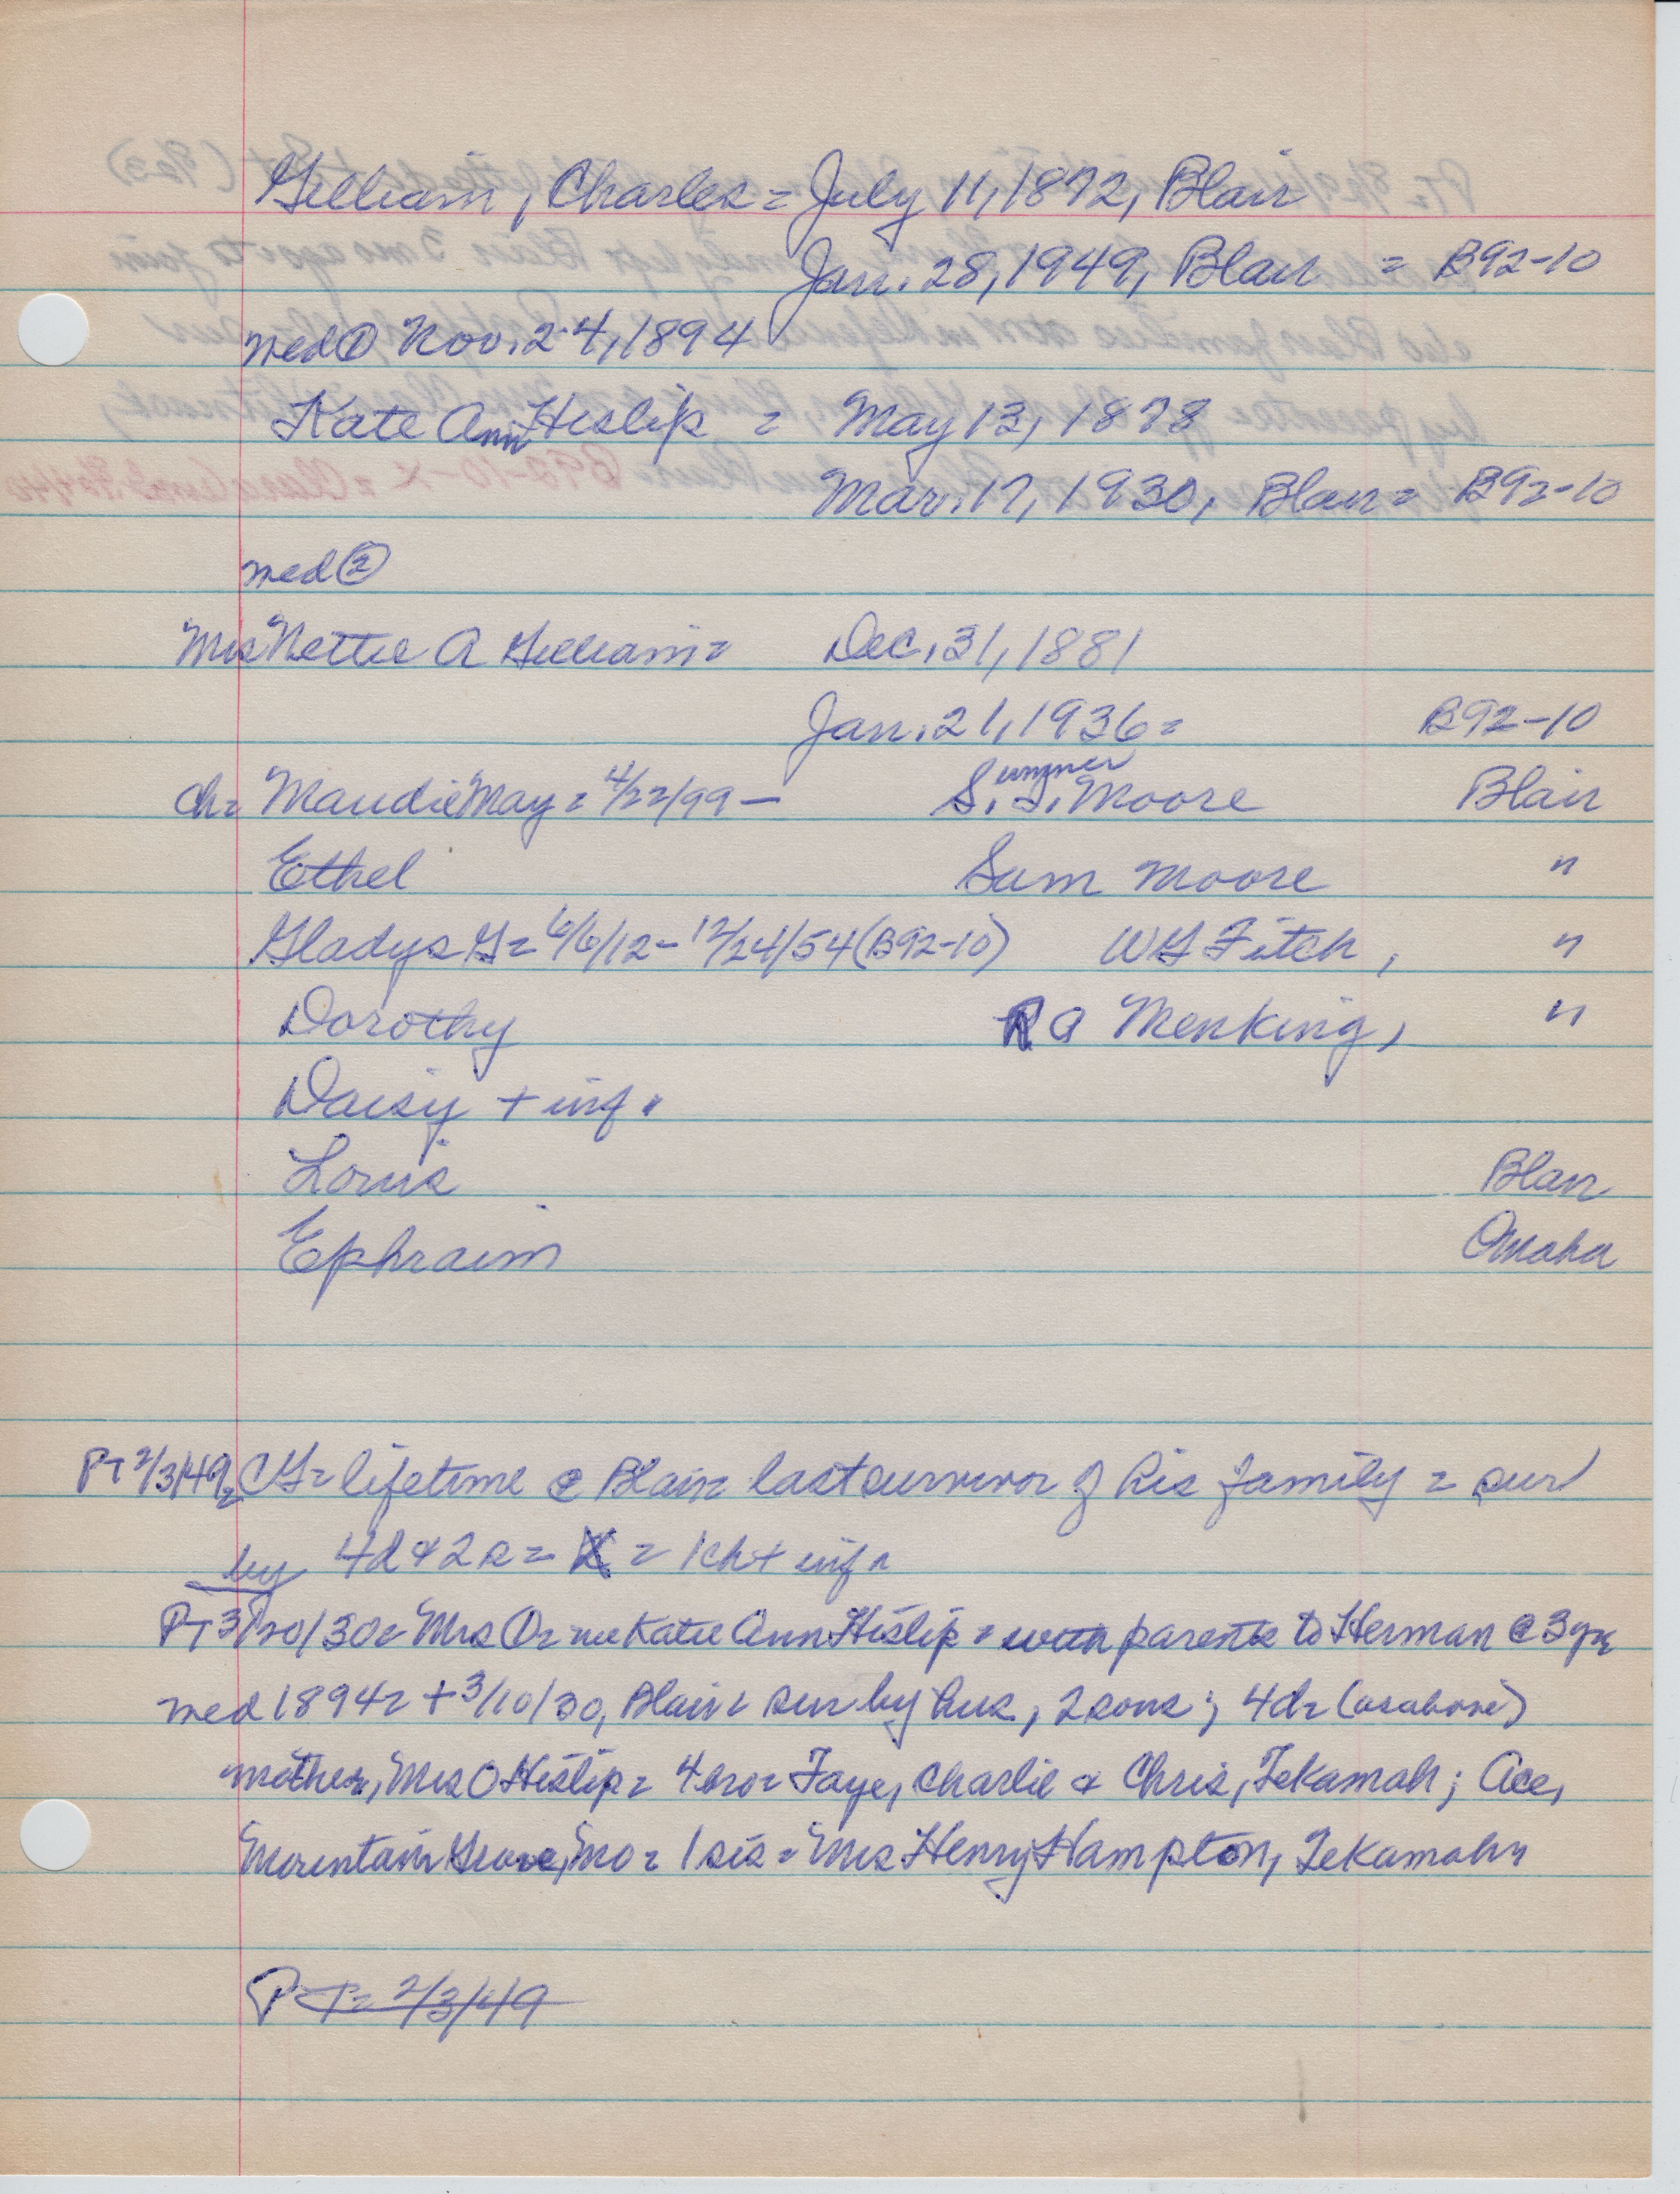 Gilliam, Charles = July 11, 1872, Blair
Jan. 28, 1949, Blair = B92-10
med ① Nov. 24, 1894
Kate Ann Hislip = May 13, 1878
Mar. 17, 1930, Blair = B92-10
med ②
Mrs Nettie A Gilliam = Dec. 31, 1881
Jan. 21, 1936 = B92-10
Sumner
ch = Maudie May = 4/22/99 — S. J. Moore Blair
Ethel Sam Moore "
Gladys G = 6/6/12 - 12/24/54 (B92-10) W G Fitch, "
Dorothy R A Menking, "
Daisy + inf.
Louis Blair
Ephraim Omaha
PT 2/3/49 = CG = lifetime @ Blair = last survivor of his family = sur
by 4d & 2s = = 1ch + inf.
PT 3/20/30 = Mrs C = nee Katie Ann Hislip = with parents to Herman @ 3 yrs
med 1894 = + 3/10/30, Blair = sur by hus, 2 sons; 4d = (as above)
mother, Mrs O Hislip = 4 bro = Faye, Charlie & Chris, Tekamah; Ace,
Mountain Grove, Mo = 1 sis = Mrs Henry Hampton, Tekamah
PT = 2/3/49